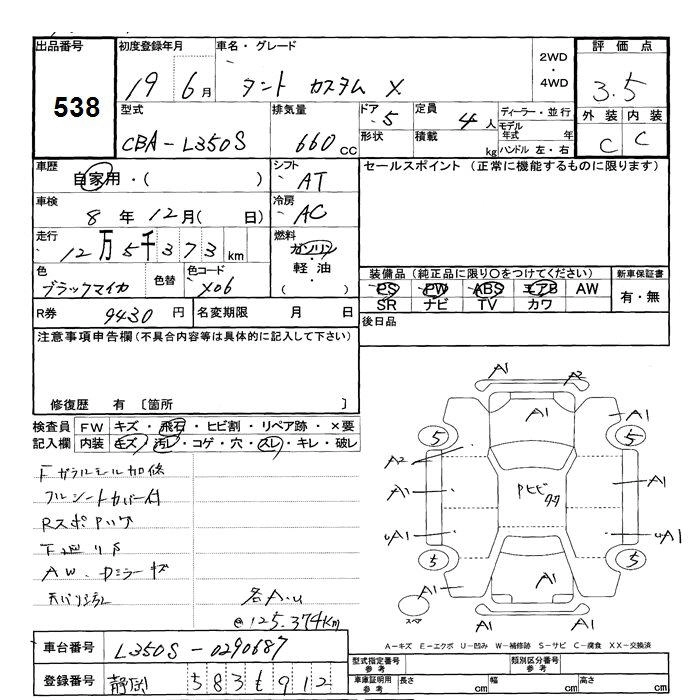 出品番号
538
初度登録年月
19 6月
車名・グレード
タント カスタム X
2WD
・
4WD
評価点
3.5
外装 内装
C C
型式
CBA-L350S
排気量
660cc
ドア 5
形状
定員 4人
積載 kg
ディーラー・並行
モデル年式 年
ハンドル 左・右
車歴
自家用・( )
シフト
AT
セールスポイント (正常に機能するものに限ります)
車検
8年12月( 日)
冷房
AC
走行
12万5千373km
燃料
ガソリン
軽油
( ・ )
色
ブラックマイカ
色替
色コード
X06
装備品(純正品に限り〇をつけてください)
PS PW ABS エアB AW
SR ナビ TV カワ
新車保証書
有・無
R券 9430円
名変期限 月 日
後日品
注意事項申告欄(不具合内容等は具体的に記入して下さい)
修復歴 有〔箇所 〕
検査員 FW キズ・飛石・ヒビ割・リペア跡・×要
記入欄 内装 キズ・汚レ・コゲ・穴・スレ・キレ・破レ
フルシートカバー付
AW、カミラーキズ
各A.U
@125.374km
A1 A2
A1 A1
5 5
A2
Pヒビ
A1 A1
uA1 uA1
5 5
A1 A1
A1
スペア
A-キズ E-エクボ U-凹み W-補修跡 S-サビ C-腐食 XX-交換済
車台番号
L350S-0290687
登録番号
静岡 583 も 912
型式指定番号
参考
類別区分番号
参考
車庫証明用
参考
長さ cm 幅 cm 高さ cm